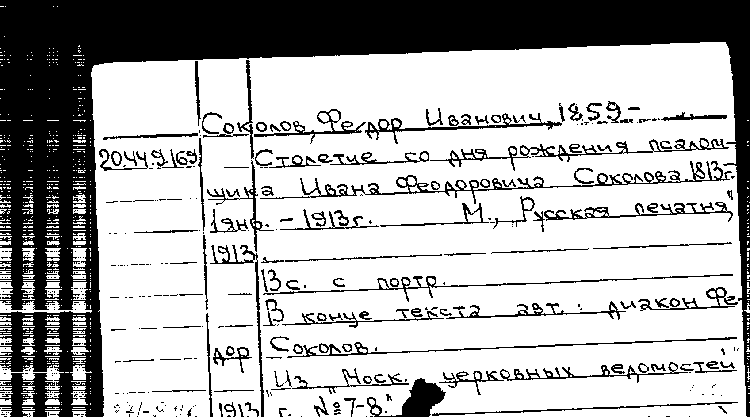 Соколов, Федор Иванович, 1859-
20449/69 Столетие со дня рождения псалом-
щика Ивана Феодоровича Соколова. 1813г.
1 янв. - 1913г. М., "Русская печатня",
1913.
13с. с портр.
В конце текста авт.: диакон Фе-
дор Соколов.
"Из "Моск. церковных ведомостей"
1913 г. №7-8."